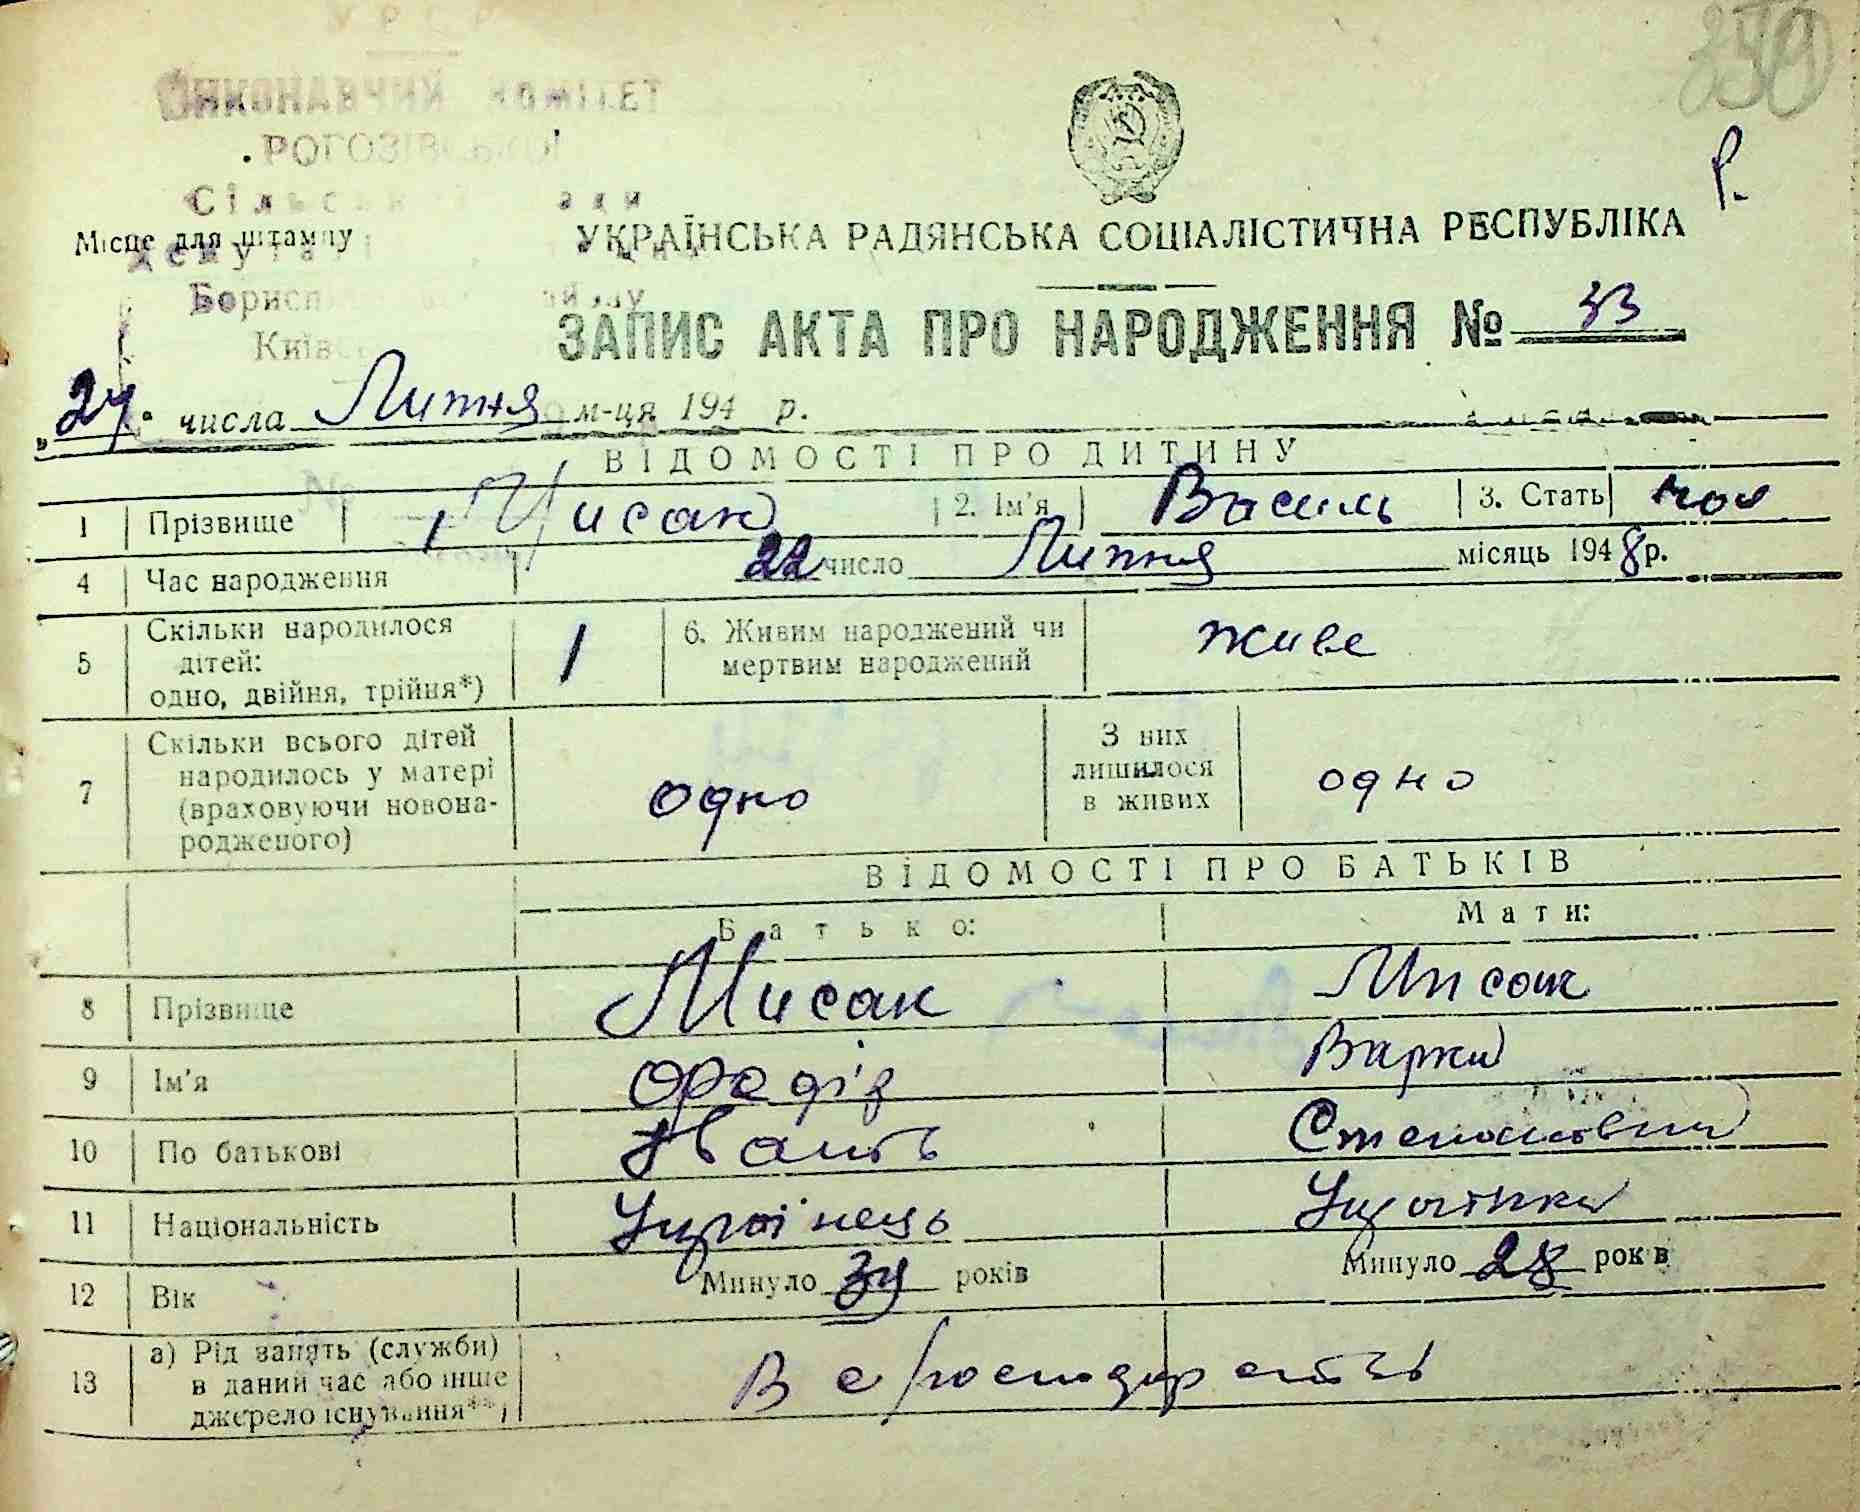 УРСР
ВИКОНАВЧИЙ КОМІТЕТ
РОГОЗІВСЬКОЇ
Сільської Ради
Місце для штампу
УКРАЇНСЬКА РАДЯНСЬКА СОЦІАЛІСТИЧНА РЕСПУБЛІКА
ЗАПИС АКТА ПРО НАРОДЖЕННЯ № 33
„24" числа Липня м-ця 194 р.
ВІДОМОСТІ ПРО ДИТИНУ
1 Прізвище Мисак 2. Ім'я Василь 3. Стать чол
4 Час народження 22 число Липня місяць 1948 р.
5 Скільки народилося дітей: одно, двійня, трійня*) 1 6. Живим народжений чи мертвим народжений живе
7 Скільки всього дітей народилось у матері (враховуючи новонародженого) одно З них лишилося в живих одно
ВІДОМОСТІ ПРО БАТЬКІВ
Батько: Мати:
8 Прізвище Мисак Мисак
9 Ім'я Варка
10 По батькові Степановна
11 Національність Українець Українка
12 Вік Минуло 34 років Минуло 28 років
13 а) Рід занять (служби) в даний час або інше джерело існування**)